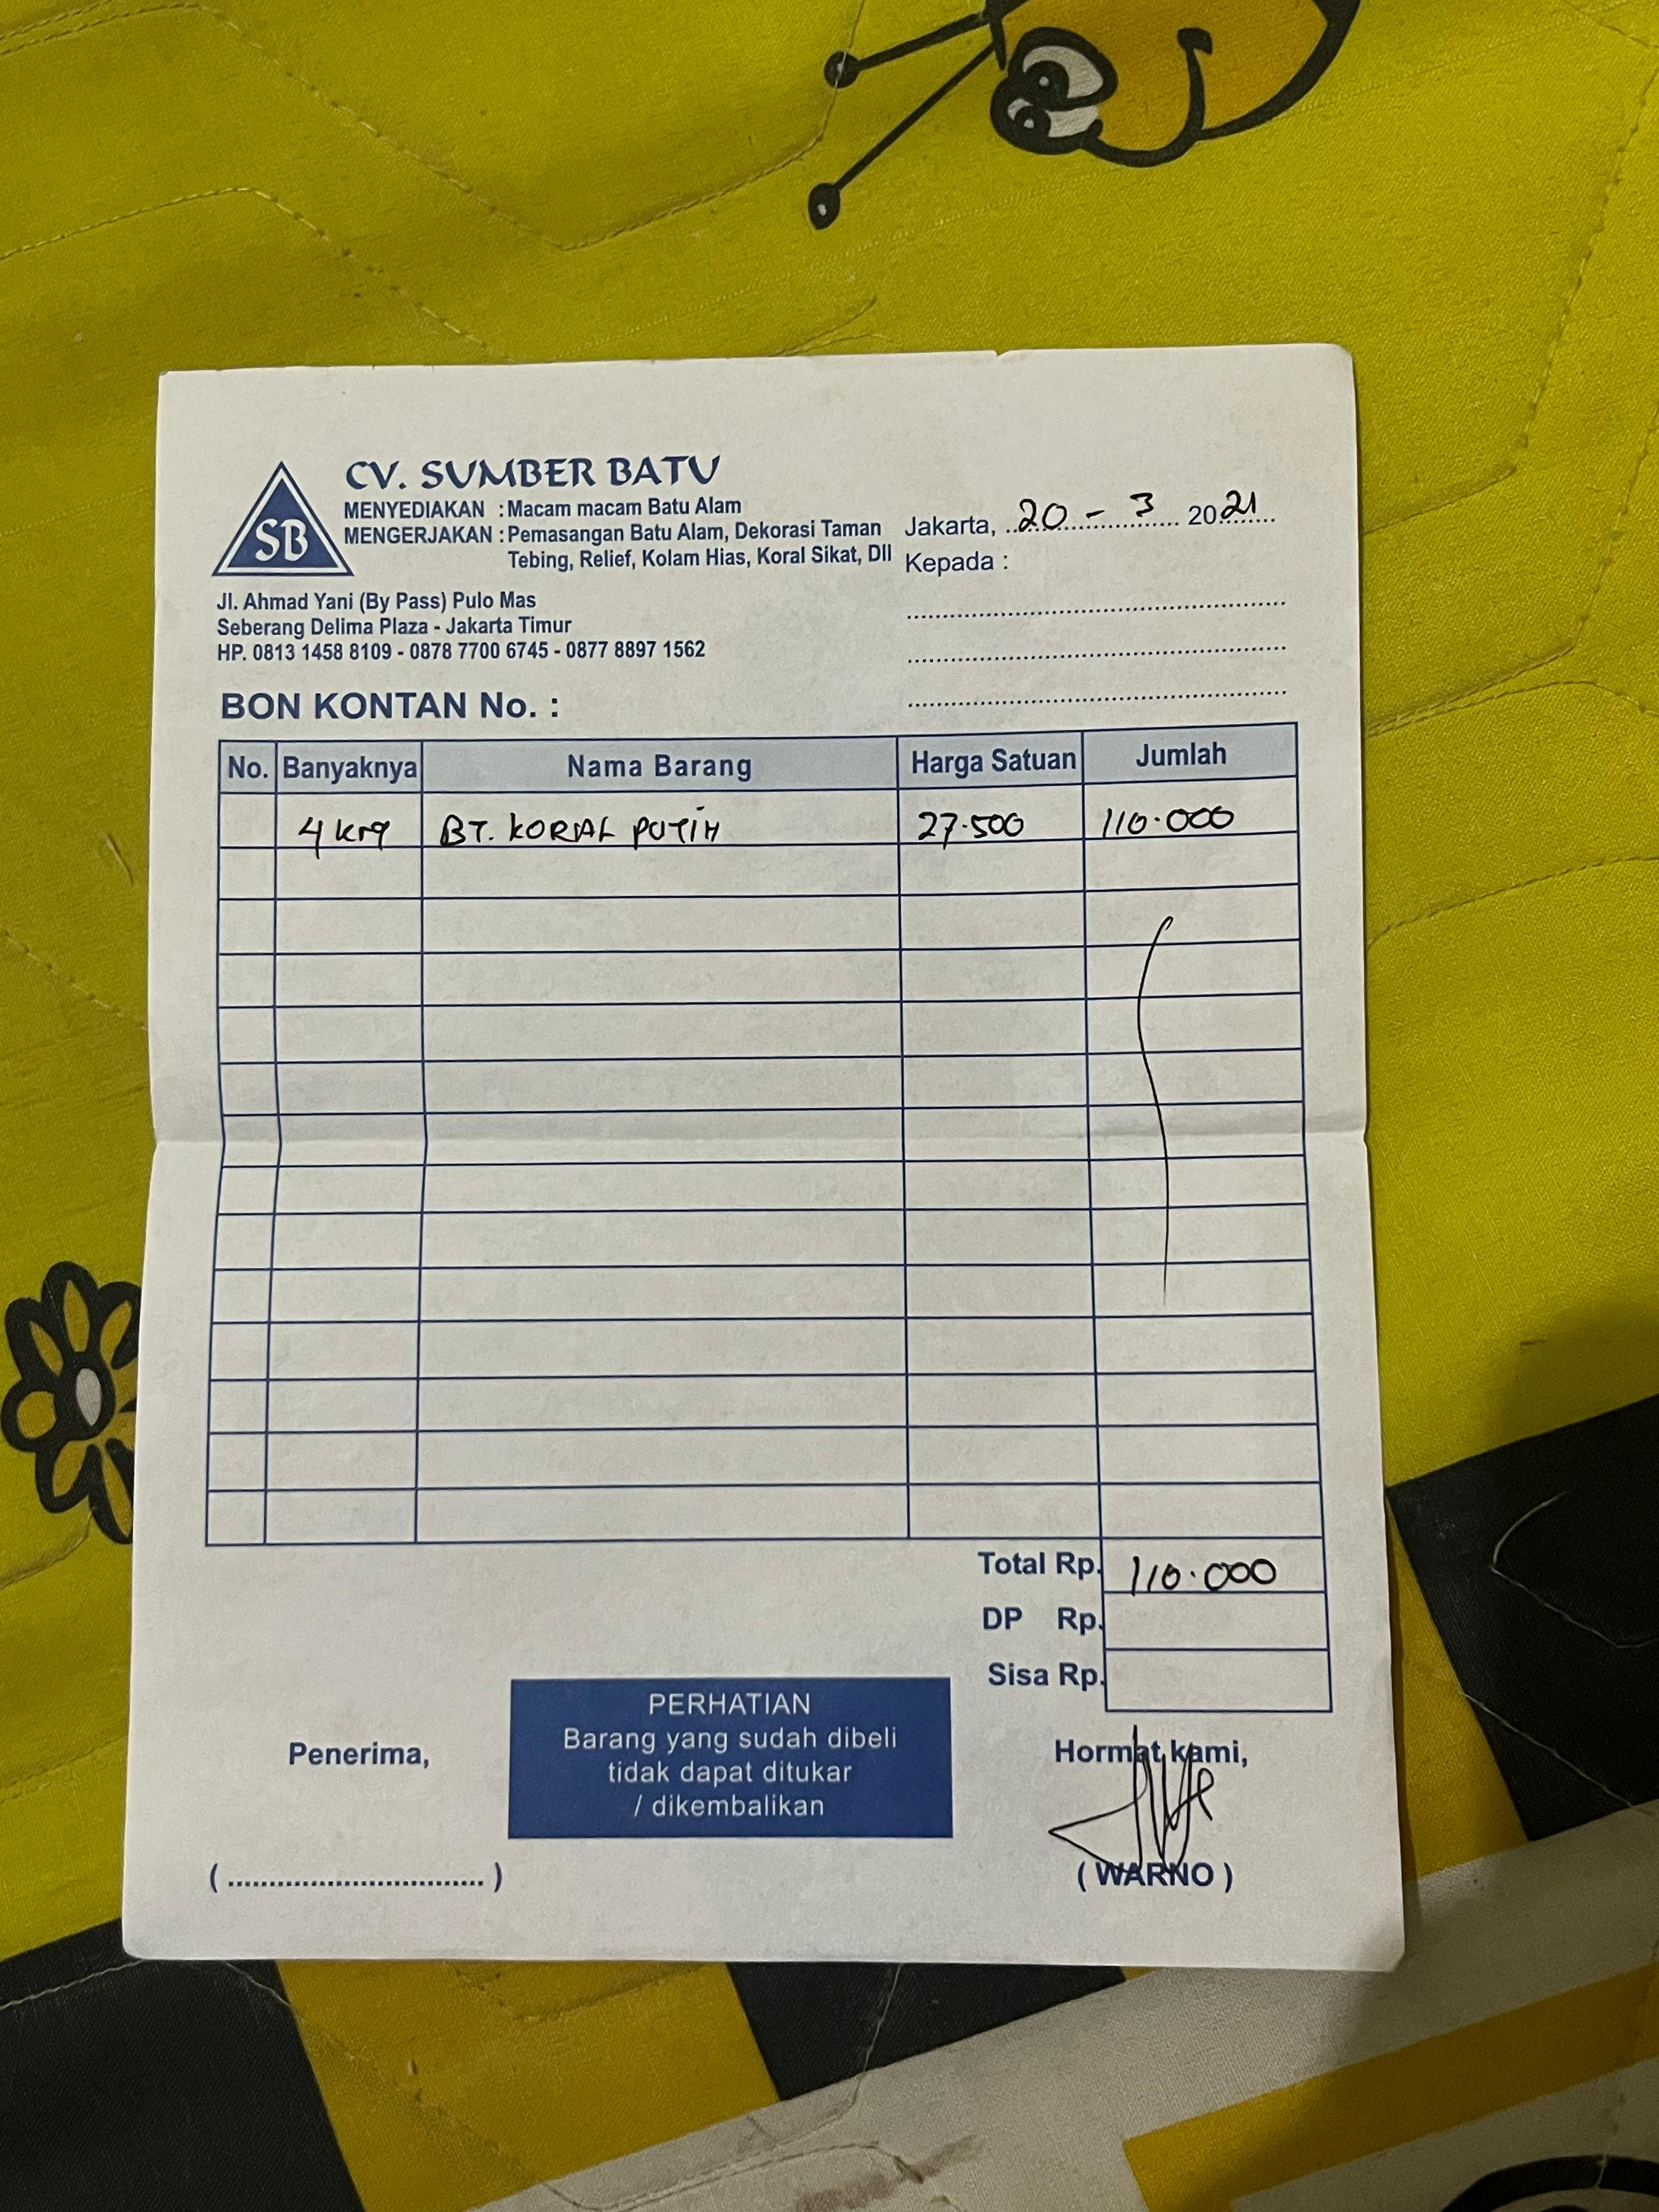 CV. SUMBER BATU
SB
MENYEDIAKAN : Macam macam Batu Alam
MENGERJAKAN : Pemasangan Batu Alam, Dekorasi Taman
Tebing, Relief, Kolam Hias, Koral Sikat, Dll
Jakarta, 20 - 3 2021
Kepada :
Jl. Ahmad Yani (By Pass) Pulo Mas
Seberang Delima Plaza - Jakarta Timur
HP. 0813 1458 8109 - 0878 7700 6745 - 0877 8897 1562
BON KONTAN No. :
No. Banyaknya Nama Barang Harga Satuan Jumlah
4 krg BT. KORAL PUTIH 27.500 110.000
Total Rp. 110.000
DP Rp.
Sisa Rp.
PERHATIAN
Barang yang sudah dibeli
tidak dapat ditukar
/ dikembalikan
Penerima,
Hormat kami,
(..............................)
( WARNO )